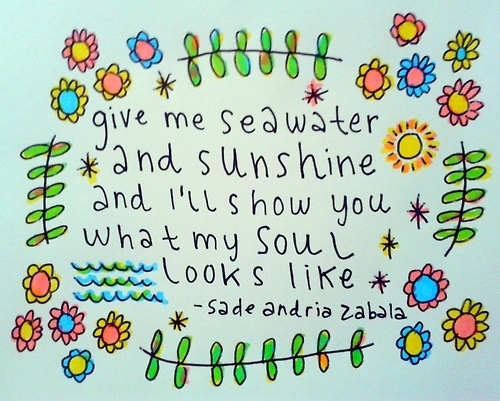 give me seawater
and sunshine
and I'll show you
what my soul
looks like
-sade andria zabala